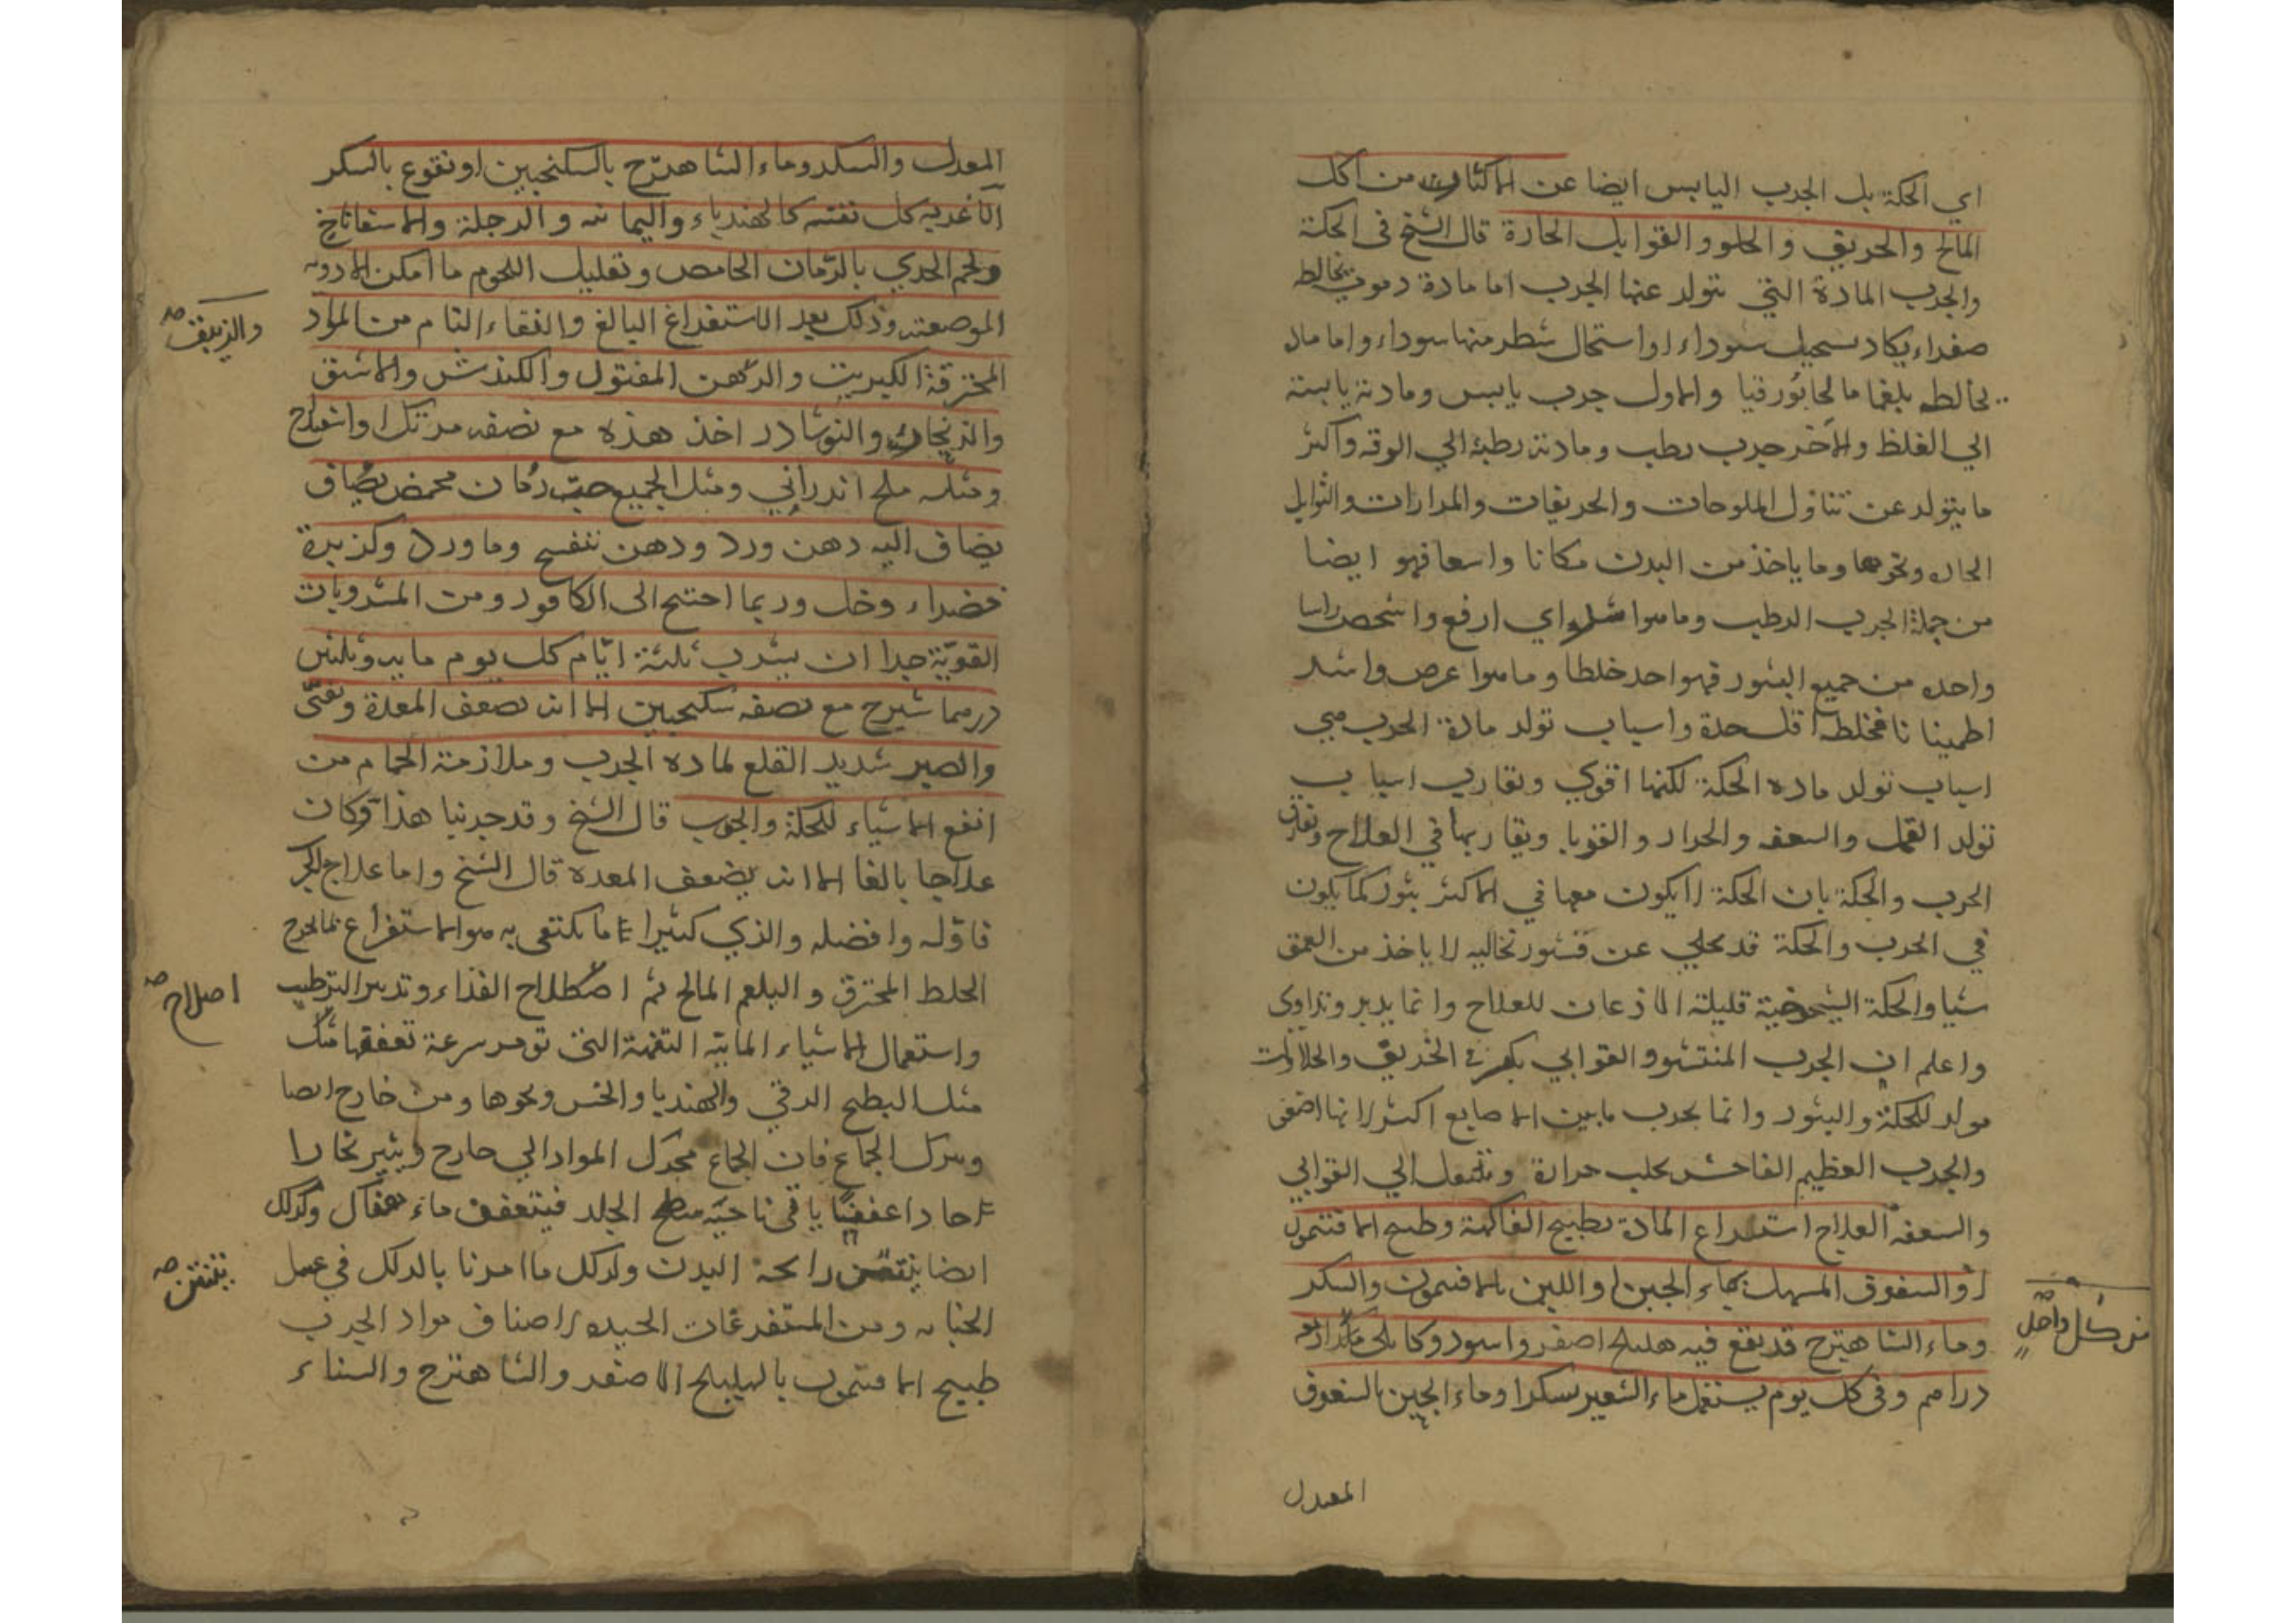 اي الحكة بل الجرب اليابس ايضا عن الاكثار من اكل
المالح والحريف والحلو والقوابل الحارة قال الشيخ في الحكة
والجرب المادة التي تتولد عنها الجرب اما مادة دموية تخالط
صفراء يكاد تستحيل سوداء او استحال شطر منها سوداء واما ماد
تخالطه بلغما مالحا بورقيا والاول جرب يابس ومادته يابسة
الي الغلظ والآخر جرب رطب ومادته رطبة الي الرقه واكثر
ما يتولد عن تناول الملوحات والحريفات والمرارات والتوابل
الحاره ونحوها وما ياخذ من البدن مكانا واسعا فهو ايضا
من جملة الجرب الرطب وما هو اي ارفع واشخص راسا
واحده من جميع البثور فهو احد خلطا وما هو اعرض واشد
اطمينانا فخلطه اقل حدة واسباب تولد مادة الجرب هي
اسباب تولد ماده الحكة لكنها اقوي ويقارب اسباب
تولد القمل والسعفه والحزاز والقوبا ويقاربها في العلاج ويفارق
الجرب والحكة بان الحكة لا يكون معها في الاكثر بثور كما يكون
في الجرب والحكة قد تجلي عن قشور نخاليه لا ياخذ من العمق
شيا والحكة الشيخوخية قليلة الاذعان للعلاج وانما يدبر وتداوى
واعلم ان الجرب المنتشر والقوابي يكثر في الخريف والحلاوات
مولد للحكة والبثور وانما يجرب ما بين الاصابع اكثر لانها اضعف
والجرب العظيم الفاحش يجلب حرارة وتنتقل الي القوابي
والسعفه العلاج استفراع المادة بطبيخ الفاكهة وطبيخ الافتيمون
او السفوف المسهل بماء الجبن او اللبن بالافتيمون والسكر
وماء الشاهترج قد ينقع فيه هليلج اصفر واسود وكابلي
من كل واحد
دراهم وفي كل يوم يستعمل ماء الشعير بسكر او ماء الجبن بالسفوف
المعدل
المعدل والسكر وماء الشاهترج بالسكنجبين او نقوع بالسكر
الاغديه كل تفسه كالهندباء واليمانيه والرجلة والاسفاناخ
ولحم الجدي بالرمان الحامض وتقليل اللحوم ما امكن الادويه
الموضعيه وذلك بعد الاستفراغ البالغ والنقاء التام من المواد
والزيبق صح
المحترقة الكبريت والدهن المفتول والكندش والاشق
والزنجار والنوشادر اخذ هذه مع نصفه مرتك واسفيداج
ومثله ملح اندراني ومثل الجميع حب رمان محمض يضاف
يضاف اليه دهن ورد ودهن بنفسج وماورد وكزبرة
خضراء وخل وربما احتيج الى الكافور ومن المشروبات
القوية جدا ان يشرب ثلثة ايام كل يوم مايه وثلثين
درهما شيرج مع نصفه سكنجبين الا انه يضعف المعدة ويغثى
والصبر شديد القلع لماده الجرب وملازمة الحمام من
انفع الاشياء للحكة والجرب قال الشيخ وقد جربنا هذا وكان
علاجا بالغا الا انه يضعف المعده قال الشيخ واما علاج الجر
فاوله وافضله والذي كثيرا ما يكتفي به هو الاستفراغ بما يخرج
الخلط المحترق والبلغم المالح ثم اصطلاح الغذاء وتدبير الترطيب
اصلاح صح
واستعمال الاشياء المائية التفهة التي تومن سرعة تعفنها
مثل البطيخ الرقي والهندبا والخس ونحوها ومن خارج ايضا
وبترك الجماع فان الجماع محرك المواد الي خارج ويثير بخارا
حادا عفنا ياتي ناحية سطح الجلد فيتعفن ماء هنال وكذلك
ايضا ينتن رايحة البدن ولذلك ما امرنا بالدلك في غسل
ينتن صح
الجنابه ومن المستفرغات الجيده لاصناف مواد الجرب
طبيخ الافتيمون بالهليلج الاصفر والشاهترج والسناء